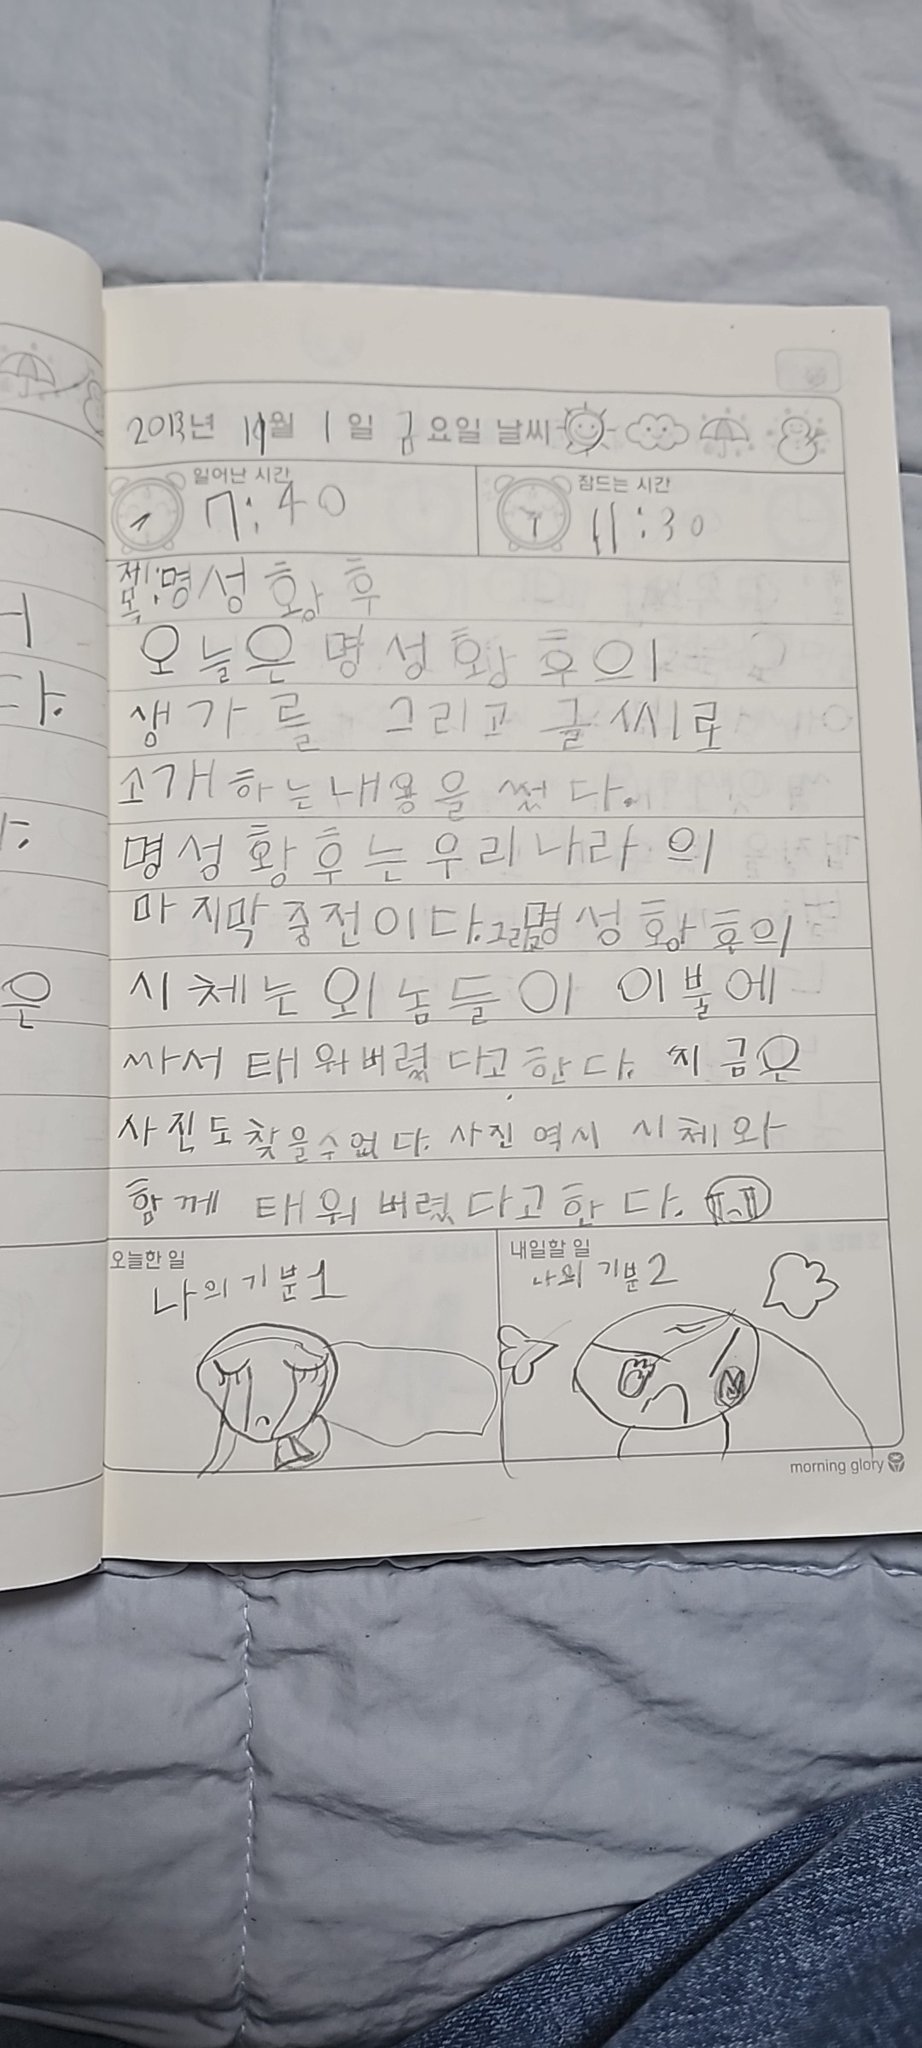 2013년 11월 1일 금요일 날씨
일어난 시간
7:40
잠드는 시간
11:30
제목:명성황후
오늘은 명성황후의
생가를 그리고 글씨로
소개하는내용을 썼다.
명성황후는우리나라의
마지막 중전이다.그리고명성황후의
시체는 외놈들이 이불에
싸서 태워버렸다고한다. 지금은
사진도찾을수없다. 사진 역시 시체와
함께 태워버렸다고한다.
오늘한 일
나의기분1
내일할 일
나의 기분2
morning glory
어
다.
은